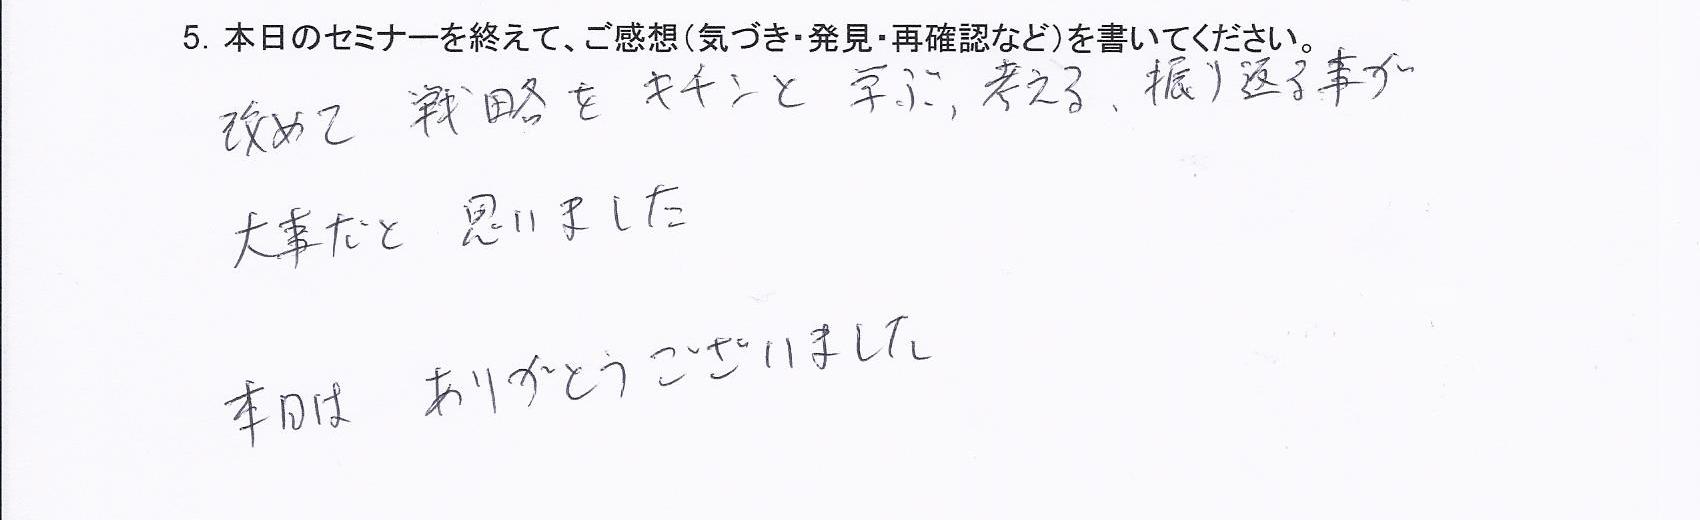 5. 本日のセミナーを終えて、ご感想（気づき・発見・再確認など）を書いてください。
改めて 戦略を キチンと 学ぶ、考える、振り返る事が
大事だと 思いました
本日は ありがとうございました